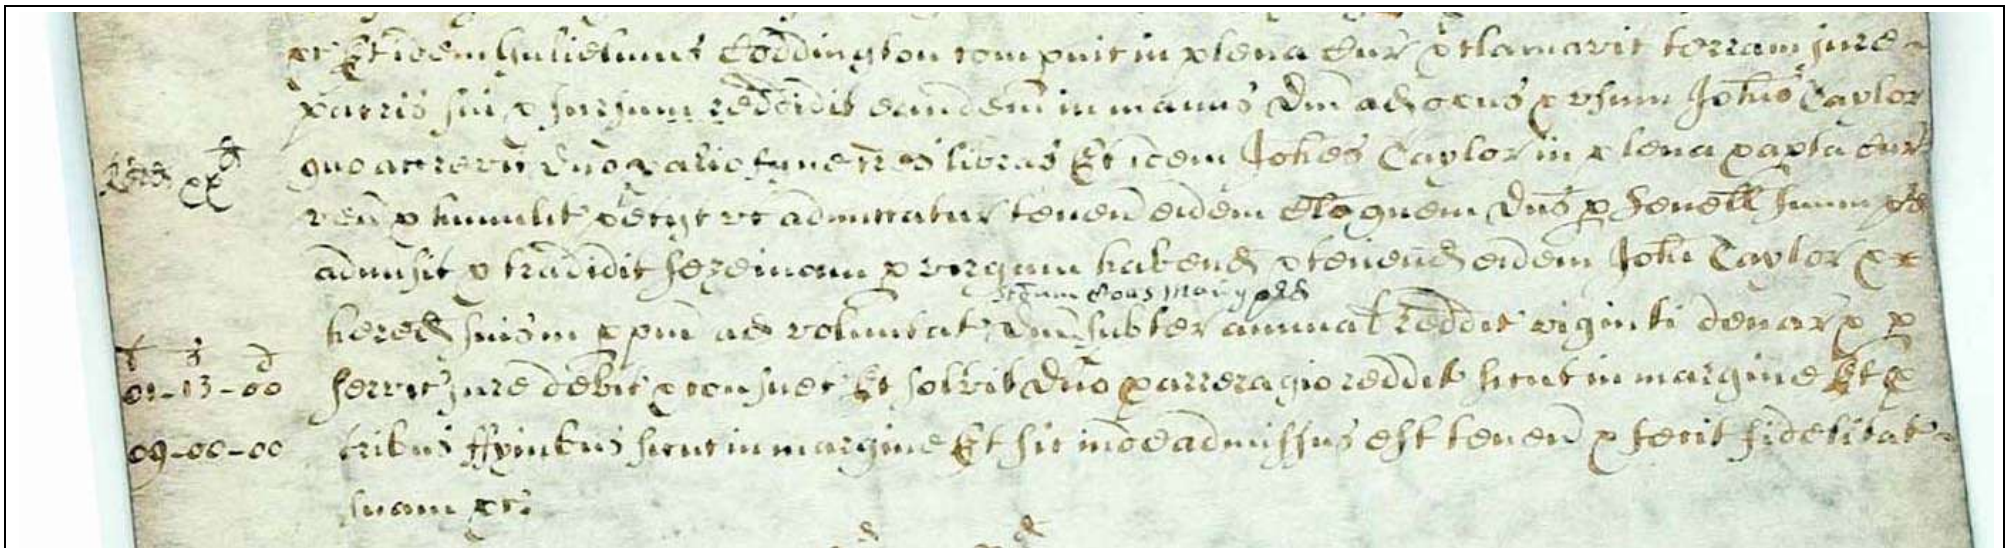 Et idem Gulielmus Coddington comp uit in plena Cur & clamavit terram jure
patris sui & sursum reddidit eandem in manus Dm ad opus & usum Johns Taylor
quo accrevit Dno alio fyne tres libras Et idem Johes Taylor in plena & apta Cur
ven & humilit petijt ut admittatur tenen eidem quem Dns p Senell suum
admisit & tradidit seizinam p virgam habend & tenend eidem John Taylor &
hered suis in ppm ad voluntat Dm sub annual reddit viginti denar & p
servic jure debit & consuet Et solvit Dno p arreragio reddit sicut in margine Et p
tribus ffynibus sicut in margine Et sic inde admissus est tenen & fecit fidelitat
suam &c.
Redd xx d
l s d
01-13-00
09-00-00